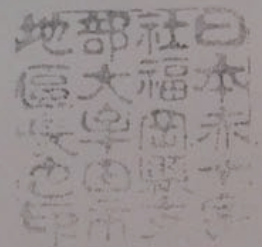 日本赤十字
社福岡縣支
部大牟田市
地區長之印